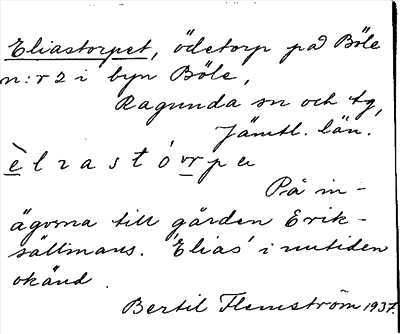 Eliastorpet, ödetorp på Böle
n:r 2 i byn Böle,
Ragunda sn och tg,
Jämtl. län.
è l ɩ a s t ó r p e
På in-
ägorna till gården Erik-
sällmans. 'Elias' i nutiden
okänd.
Bertil Flemström 1937.